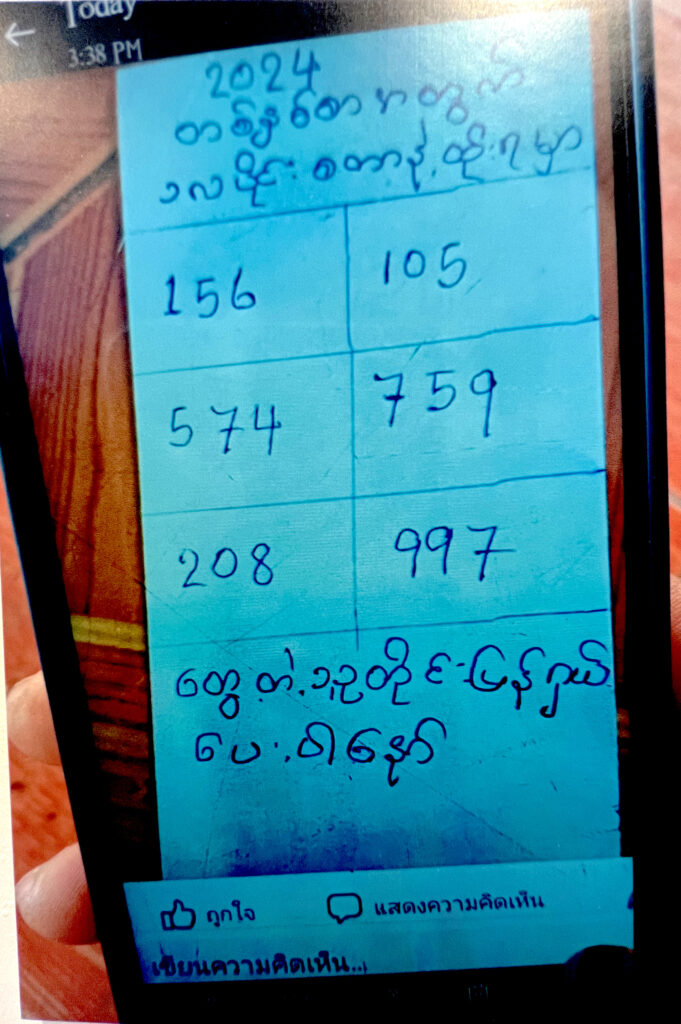 Today
3:38 PM
2024
တစ်နှစ်စာအတွက်
၁လပိုင်းစတာနဲ့ထိုးရမှာ
156 105
574 759
208 997
တွေ့တဲ့ ၁ဥတိုင်းပြန်ရှယ်
ပေးပါနော်
ถูกใจ แสดงความคิดเห็น
เขียนความคิดเห็น...